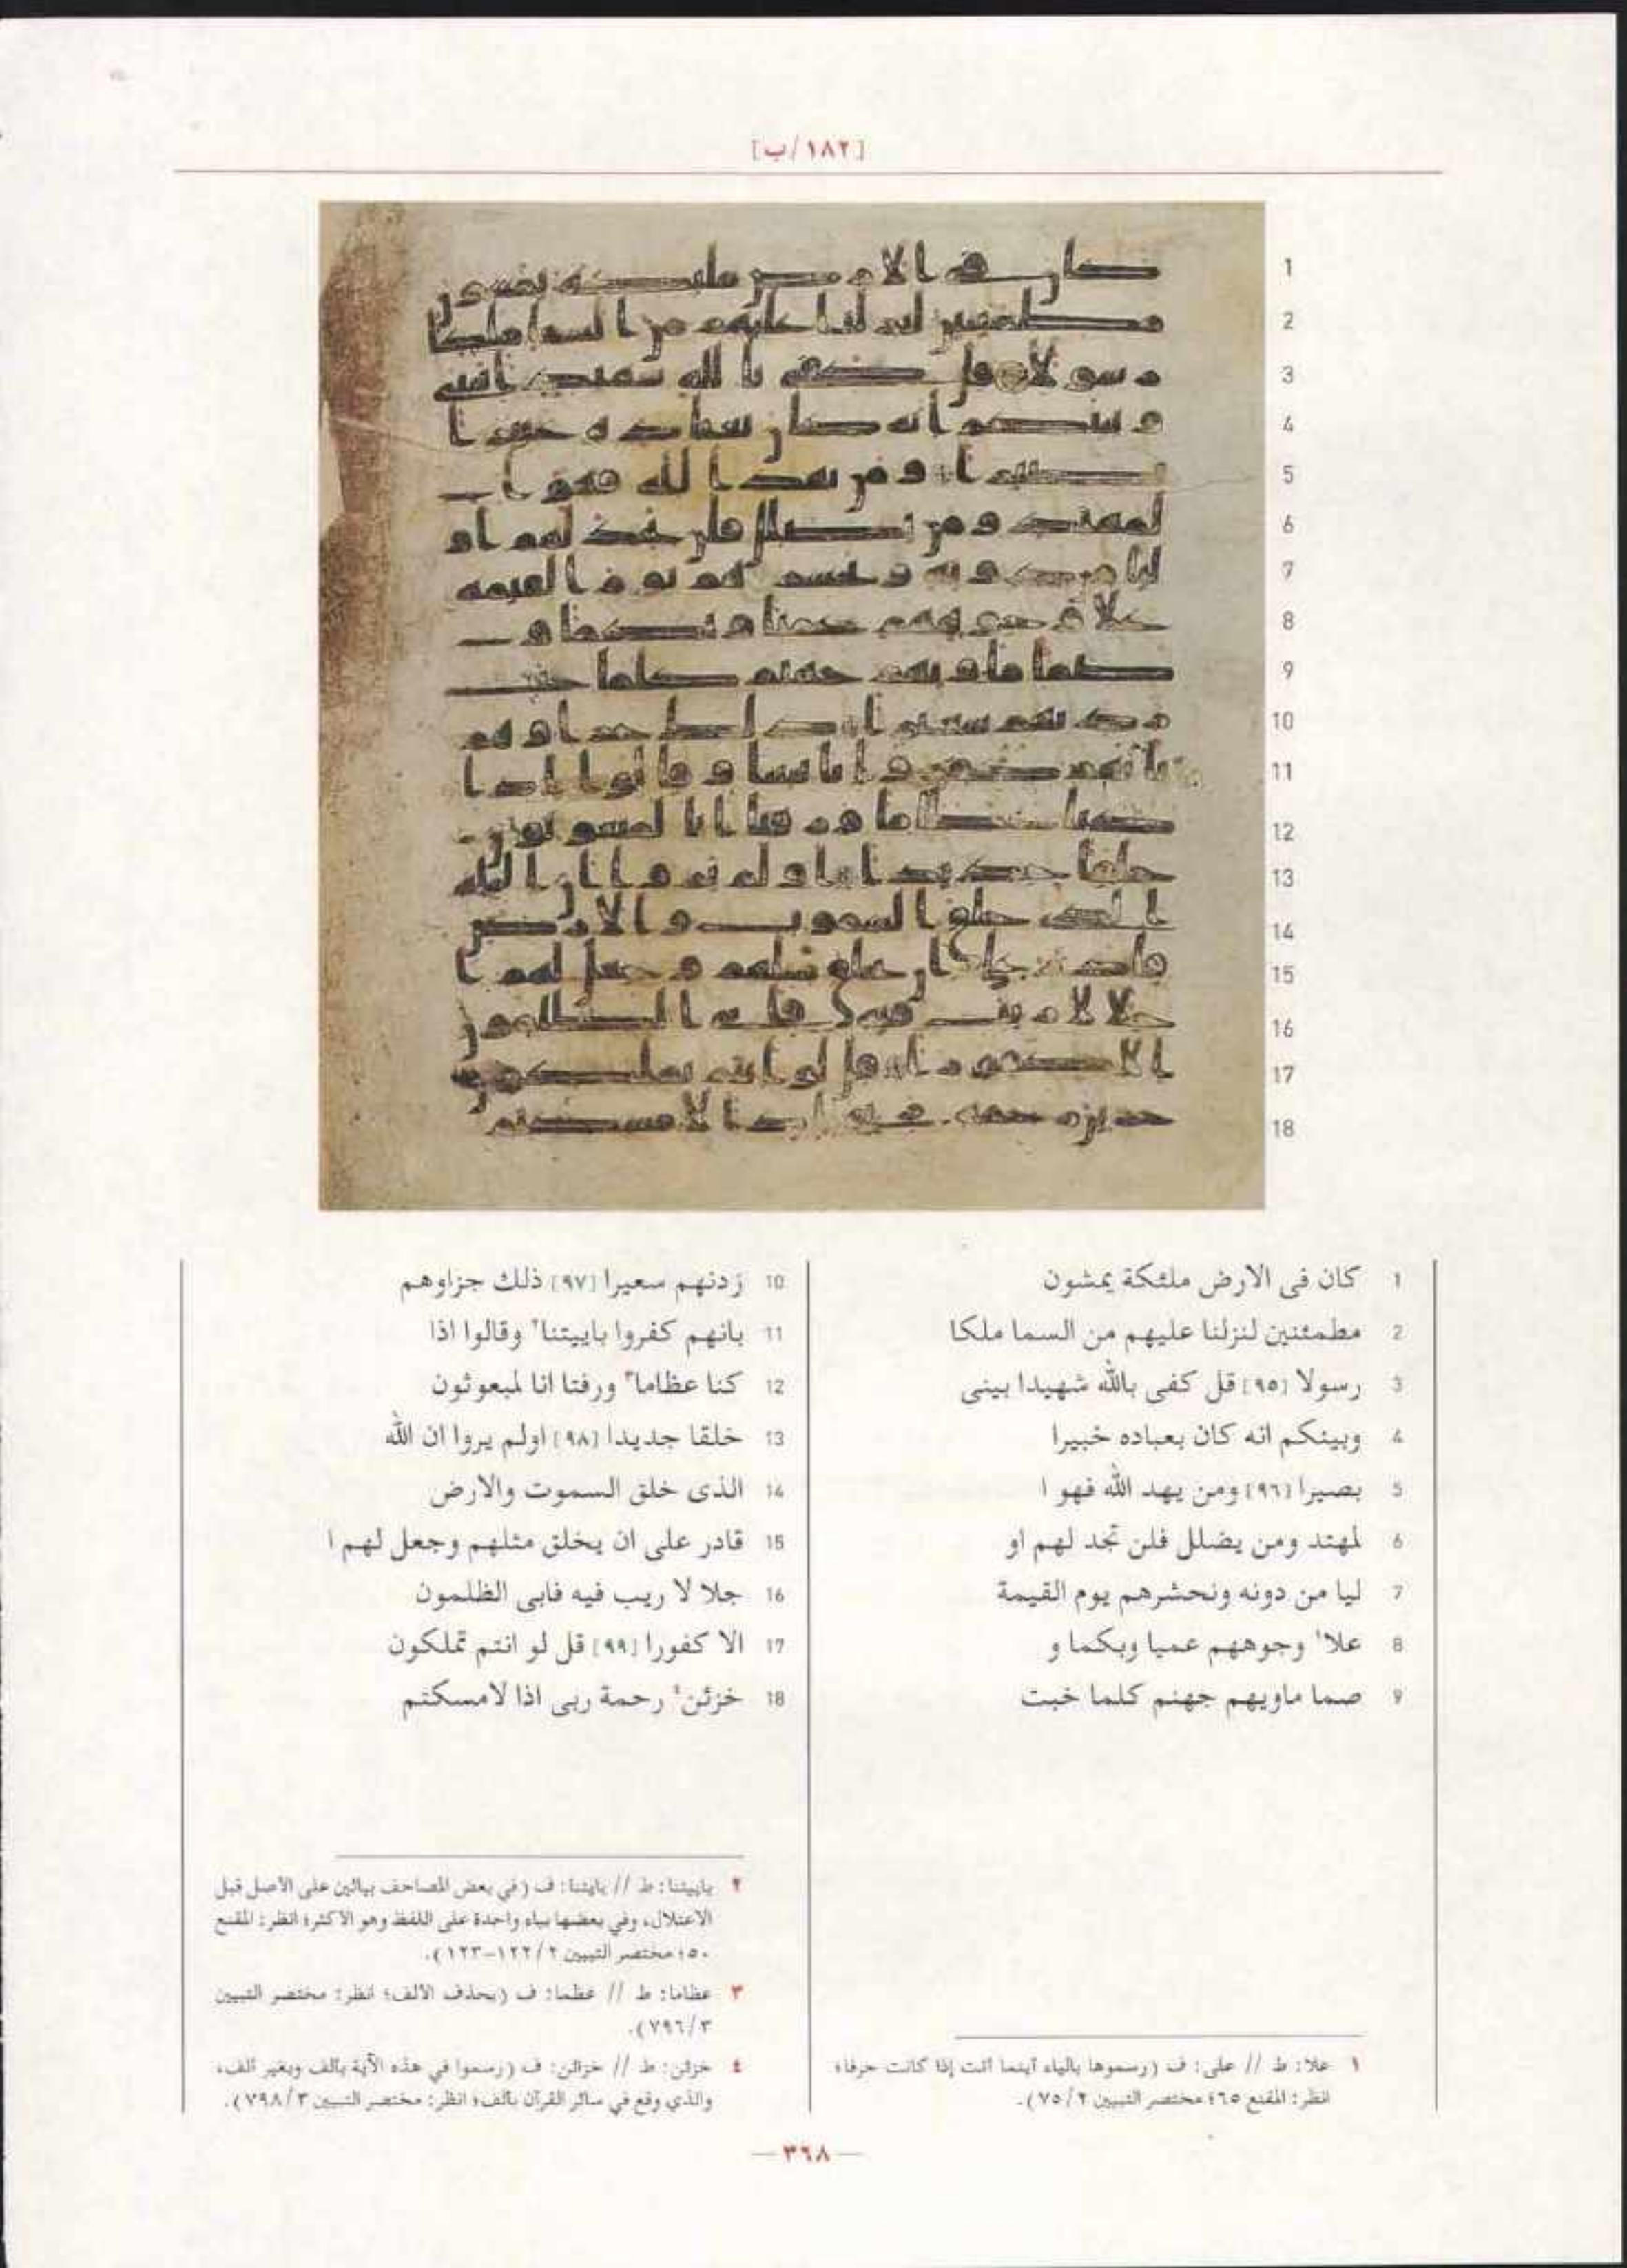 [١٨٢/ب]
1 كان فى الارض ملئكة يمشون
2 مطمئنين لنزلنا عليهم من السما ملكا
3 رسولا [٩٥] قل كفى بالله شهيدا بينى
4 وبينكم انه كان بعباده خبيرا
5 بصيرا [٩٦] ومن يهد الله فهو ا
6 لمهتد ومن يضلل فلن تجد لهم او
7 ليا من دونه ونحشرهم يوم القيمة
8 علا١ وجوههم عميا وبكما و
9 صما ماويهم جهنم كلما خبت
10 زدنهم سعيرا [٩٧] ذلك جزاوهم
11 بانهم كفروا باييتنا٢ وقالوا اذا
12 كنا عظاما٣ ورفتا انا لمبعوثون
13 خلقا جديدا [٩٨] اولم يروا ان الله
14 الذى خلق السموت والارض
15 قادر على ان يخلق مثلهم وجعل لهم ا
16 جلا لا ريب فيه فابى الظلمون
17 الا كفورا [٩٩] قل لو انتم تملكون
18 خزئن٤ رحمة ربى اذا لامسكتم
١ علا: ط // على: ف (رسموها بالياء أينما أتت إذا كانت حرفا؛
انظر: المقنع ٦٥؛ مختصر التبيين ٧٥/٢).
٢ باييتنا: ط // بايتنا: ف (في بعض المصاحف بيائين على الأصل قبل
الاعتلال، وفي بعضها بياء واحدة على اللفظ وهو الأكثر؛ انظر: المقنع
٥٠؛ مختصر التبيين ١٢٢/٢-١٢٣).
٣ عظاما: ط // عظما: ف (بحذف الألف؛ انظر: مختصر التبيين
٧٩٦/٣).
٤ خزئن: ط // خزائن: ف (رسموا في هذه الآية بألف وبغير ألف،
والذي وقع في سائر القرآن بألف؛ انظر: مختصر التبيين ٧٩٨/٣).
— ٣٦٨ —